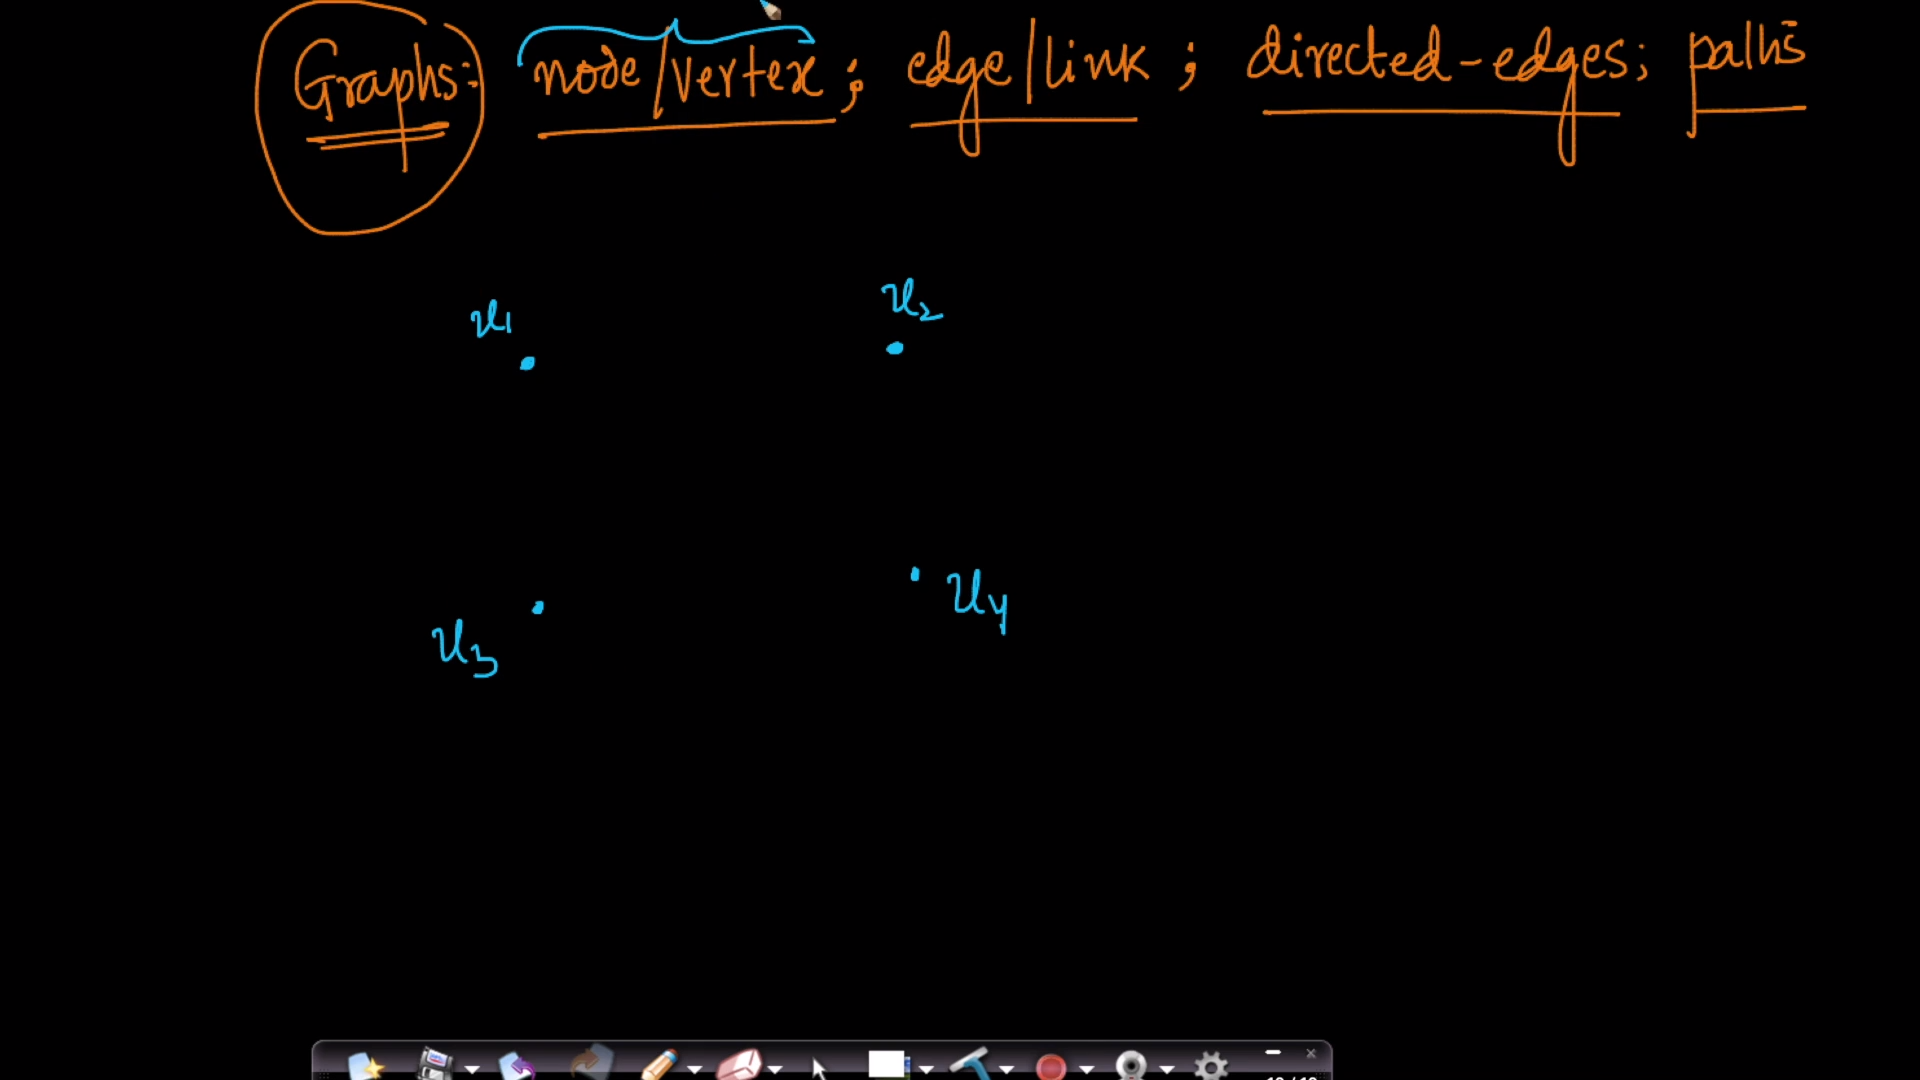 Graphs: node/vertex; edge/link; directed-edges; paths
u1
u2
u3
u4